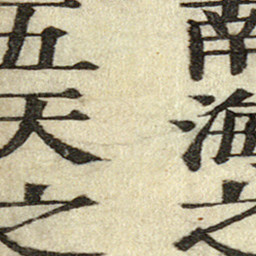 南海之
五天之